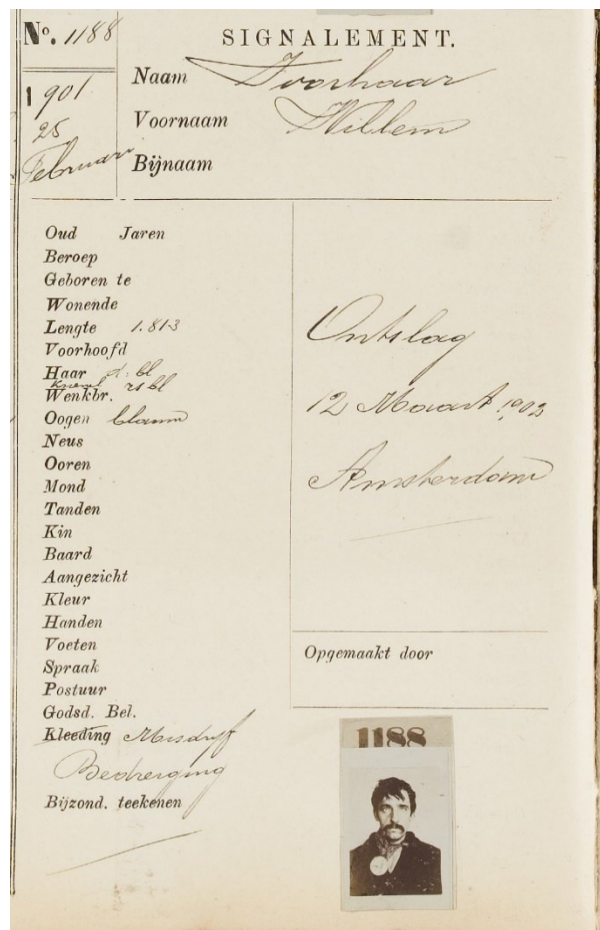 No. 1188
SIGNALEMENT.
1901
25
Februari
Naam
Voornaam Willem
Bijnaam
Oud Jaren
Beroep
Geboren te
Wonende
Lengte 1.813
Voorhoofd
Haar d. bl
Knevel rs bl
Wenkbr.
Oogen blauw
Neus
Ooren
Mond
Tanden
Kin
Baard
Aangezicht
Kleur
Handen
Voeten
Spraak
Postuur
Godsd. Bel.
Kleeding Misdrijf
Bedreiging
Bijzond. teekenen
Ontslag
12 Maart 1902
Amsterdam
Opgemaakt door
1188